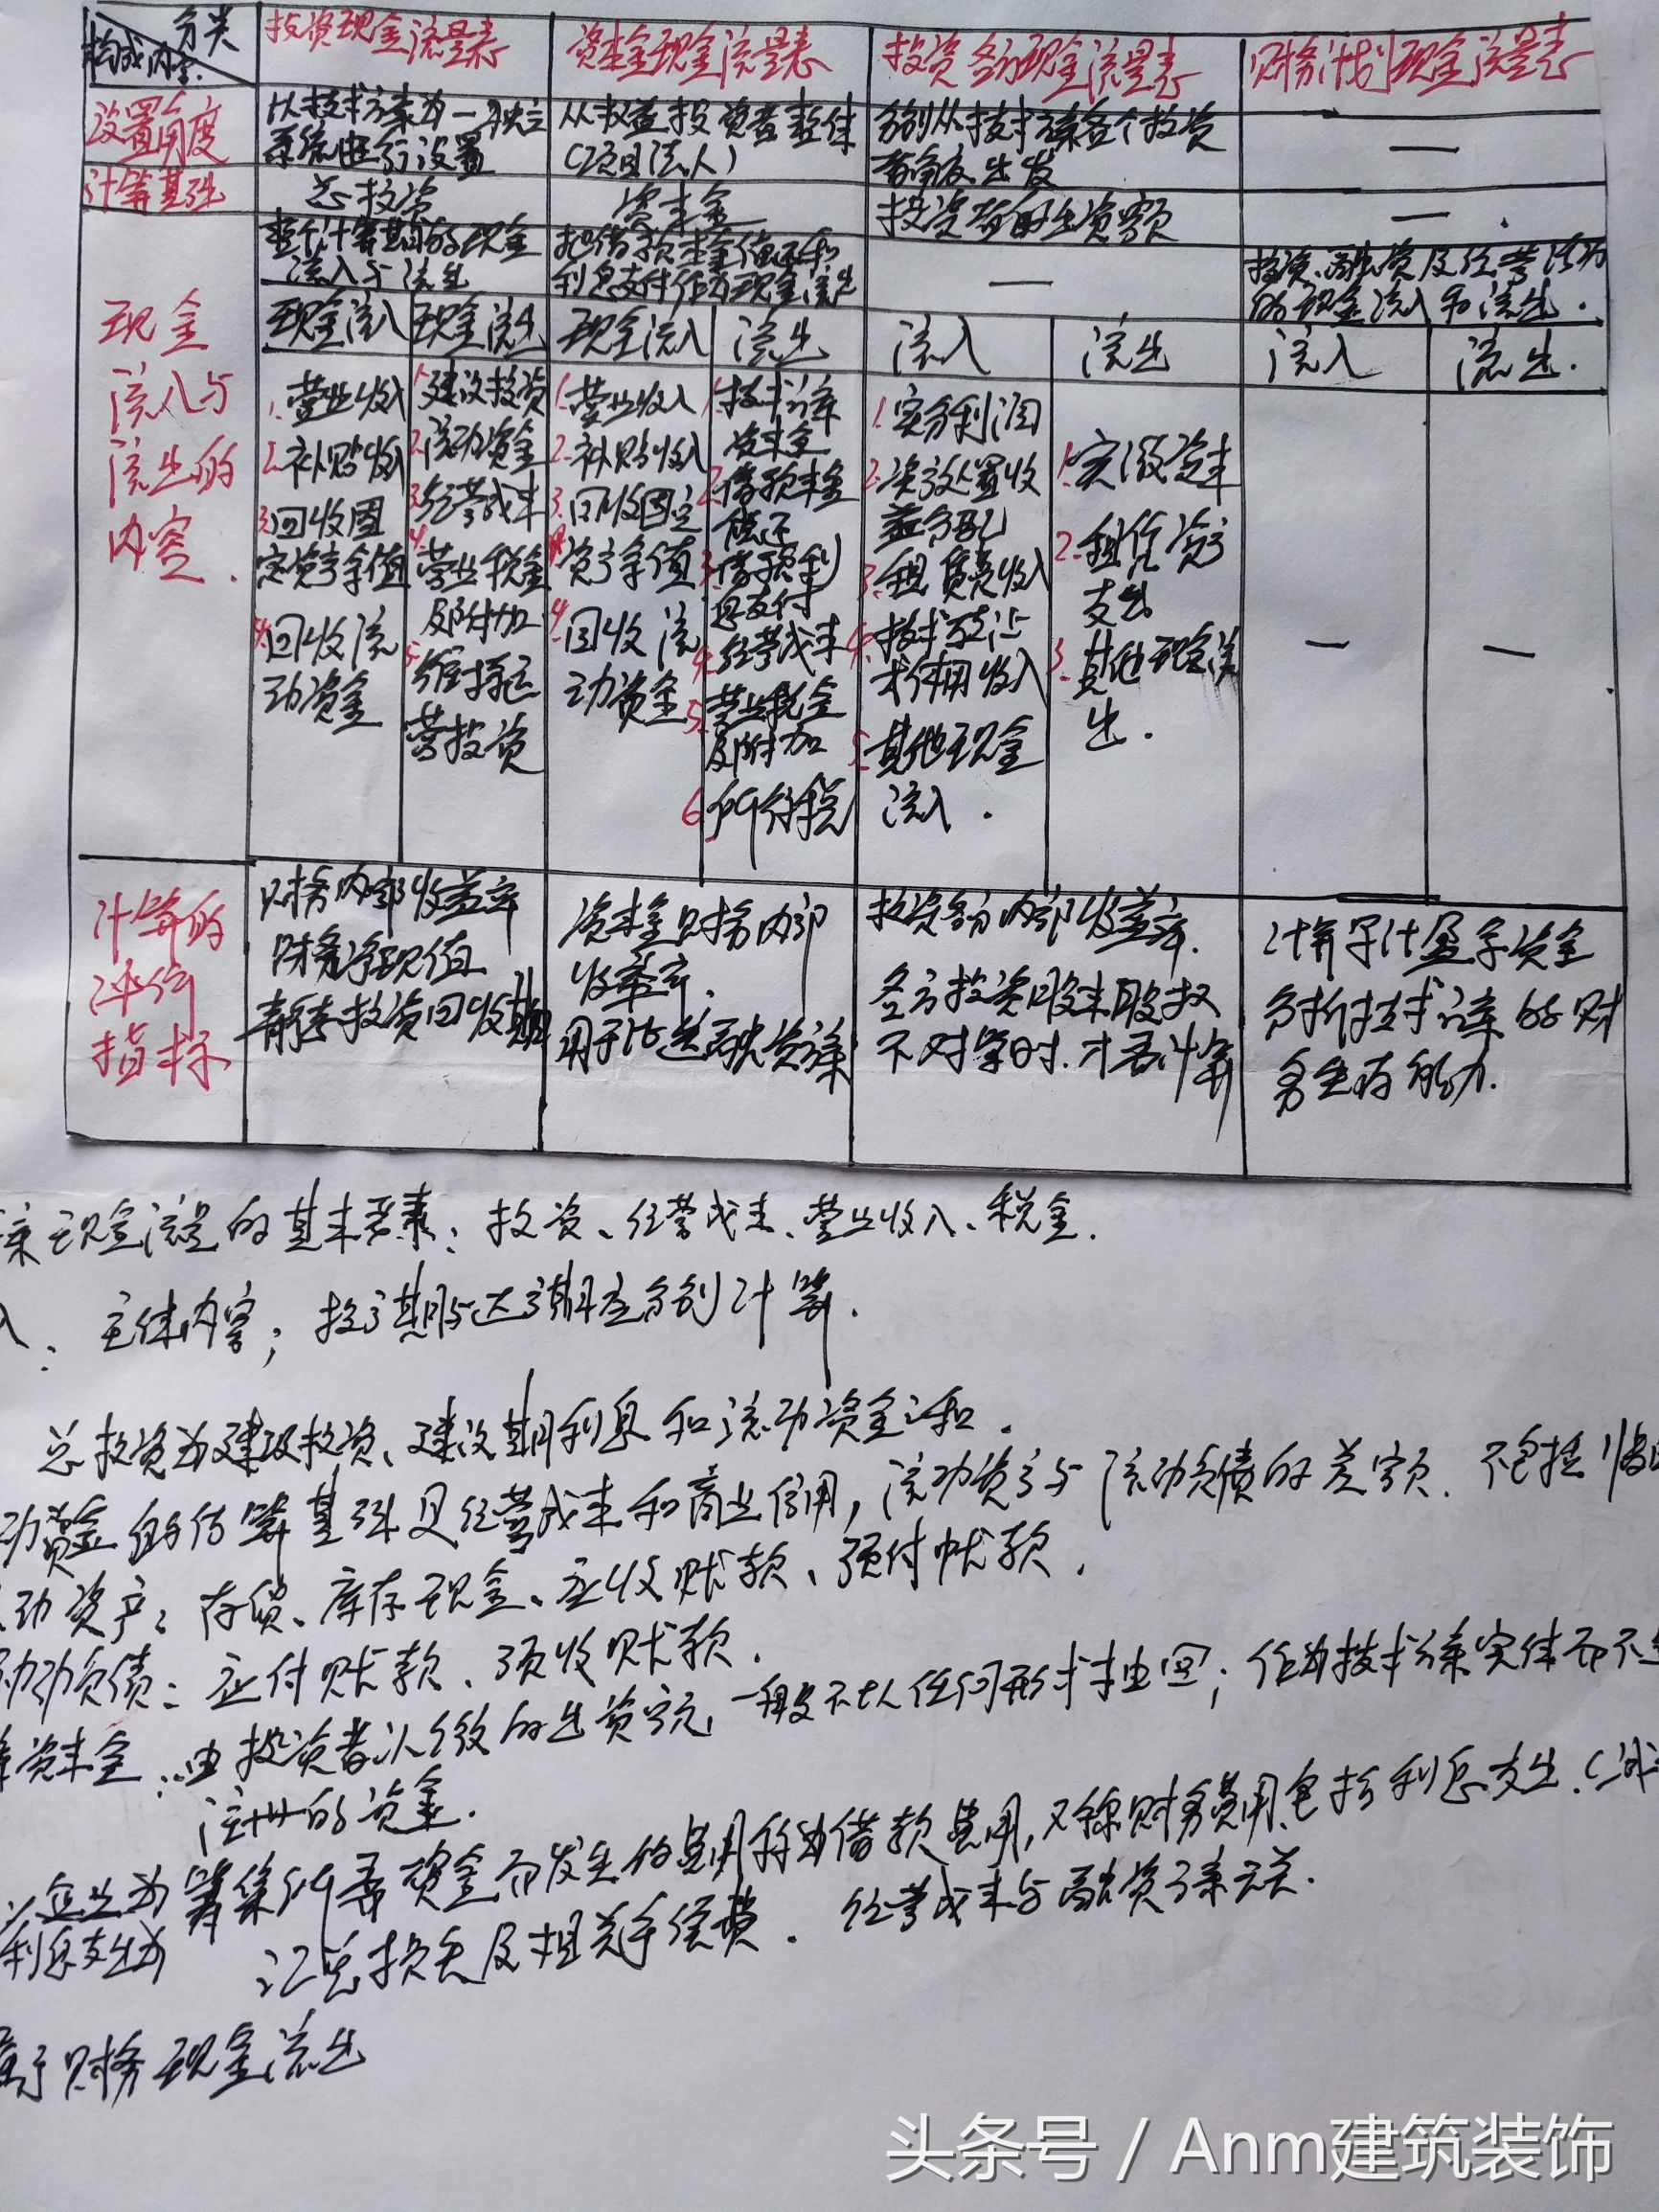 分类
构成内容
投资现金流量表
资本金现金流量表
投资各方现金流量表
财务计划现金流量表
设置角度
以技术方案为一独立
系统进行设置
从权益投资者整体
(项目法人)
分别从技术方案各个投资
者角度出发
—
计算基础
总投资
资本金
投资者的出资额
—
现金
流入与
流出的
内容.
整个计算期的现金
流入与流出
把借款本金偿还和
利息支付作为现金流出
—
投资、融资及经营活动
的现金流入和流出.
现金流入
现金流出
现金流入
流出
流入
流出
流入
流出.
1.营业收入
2.补贴收入
3.回收固
定资产余值
4.回收流
动资金
1.建设投资
2.流动资金
3.经营成本
4.营业税金
及附加
5.维持运
营投资
1.营业收入
2.补贴收入
3.回收固定
资产余值
4.回收流
动资金
1.技术方案
资本金
2.借款本金
偿还
3.借款利
息支付
4.经营成本
5.营业税金
及附加
6.所得税
1.实分利润
2.资产处置收
益分配
3.租赁费收入
4.技术转让
或使用收入
5.其他现金
流入.
1.实缴资本
2.租赁资产
支出
3.其他现金流
出.
—
—
计算的
评价
指标
财务内部收益率
财务净现值
静态投资回收期
资本金财务内部
收益率,
用于比选融资方案
投资各方内部收益率.
各方投资股本股权
不对等时.才看计算
计算累计盈余资金
分析技术方案的财
务生存能力.
案现金流量的基本要素: 投资、经营成本、营业收入、税金.
入: 主体内容; 投产期与达产期应分别计算.
总投资为建设投资、建设期利息和流动资金之和.
动资金的估算基础是经营成本和商业信用, 流动资产与流动负债的差额. 不包括临时
动资产: 存货、库存现金、应收账款、预付帐款.
动负债: 应付账款、预收账款.
资本金: 由投资者认缴的出资额, 一般不以任何形式抽回; 作为技术方案实体而不是
注册的资金.
企业为筹集所需资金而发生的费用称为借款费用, 又称财务费用.包括利息支出.(减
利息支出为
汇兑损失及相关手续费. 经营成本与融资方案无关.
高于财务现金流出
头条号 / Anm建筑装饰